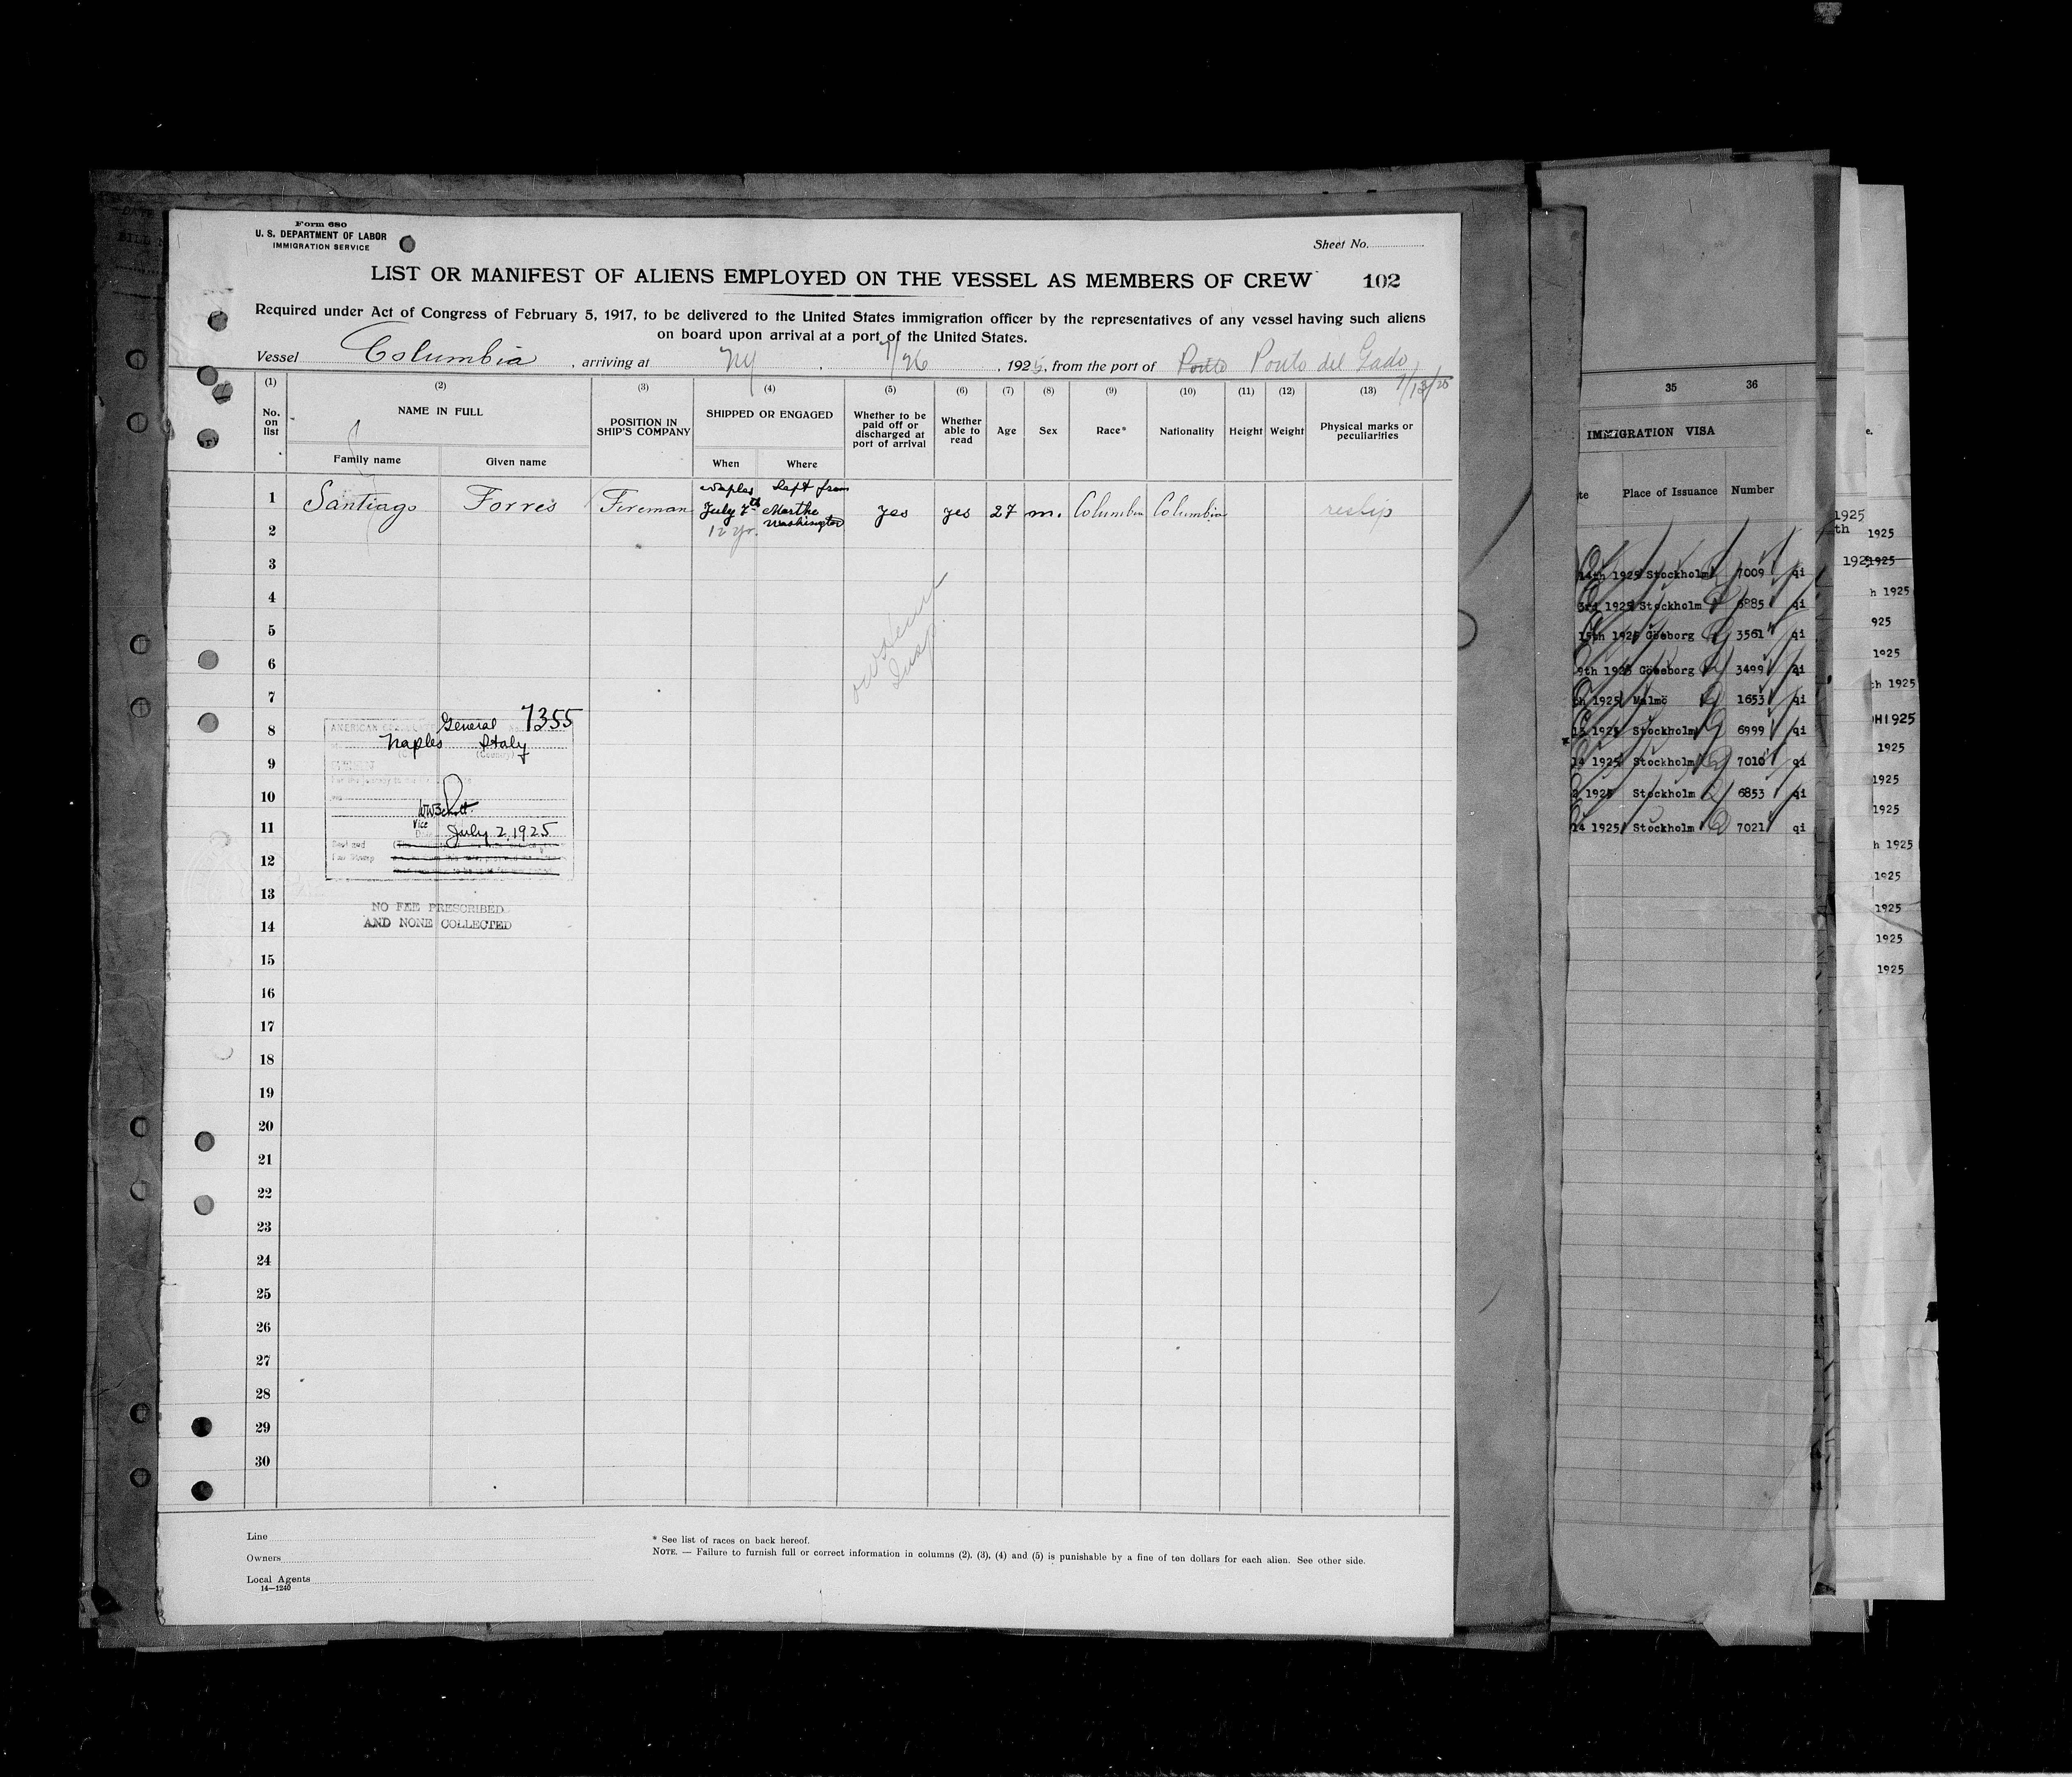 Form 680
U. S. DEPARTMENT OF LABOR
IMMIGRATION SERVICE
Sheet No.
LIST OR MANIFEST OF ALIENS EMPLOYED ON THE VESSEL AS MEMBERS OF CREW 102
Required under Act of Congress of February 5, 1917, to be delivered to the United States immigration officer by the representatives of any vessel having such aliens
on board upon arrival at a port of the United States.
Vessel Columbia, arriving at NY, 7/26, 1925, from the port of Ponto Ponto del Gado
7/18/25
(1) (2) (3) (4) (5) (6) (7) (8) (9) (10) (11) (12) (13)
No. on list
NAME IN FULL
Family name Given name
POSITION IN SHIP'S COMPANY
SHIPPED OR ENGAGED
When Where
Whether to be paid off or discharged at port of arrival
Whether able to read
Age
Sex
Race*
Nationality
Height
Weight
Physical marks or peculiarities
Naples Left from
1 Santiago Forres Fireman July 7th Martha Washington yes yes 27 m. Columbia Columbia reship
2 12 yr.
3
4
5
6
7
8
9
10
11
12
13
14
15
16
17
18
19
20
21
22
23
24
25
26
27
28
29
30
AMERICAN General 7355
Naples Italy
(Country)
Vice
Date July 2, 1925
NO FEE PRESCRIBED
AND NONE COLLECTED
Line
Owners
Local Agents
14—1240
* See list of races on back hereof.
NOTE. — Failure to furnish full or correct information in columns (2), (3), (4) and (5) is punishable by a fine of ten dollars for each alien. See other side.
35 36
IMMIGRATION VISA
te Place of Issuance Number
14th 1925 Stockholm 7009 qi
3rd 1925 Stockholm 6885 qi
15th 1925 Göeborg 3561 qi
9th 1925 Göteborg 3499 qi
th 1925 Malmö 1653 qi
1925 Stockholm 6999 qi
14 1925 Stockholm 7010 qi
1925 Stockholm 6853 qi
14 1925 Stockholm 7021 qi
1925
th 1925
1925
h 1925
925
1925
ch 1925
1925
1925
1925
1925
h 1925
1925
1925
1925
1925